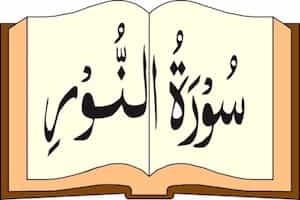 سُوْرَةُ النُّوْرِ